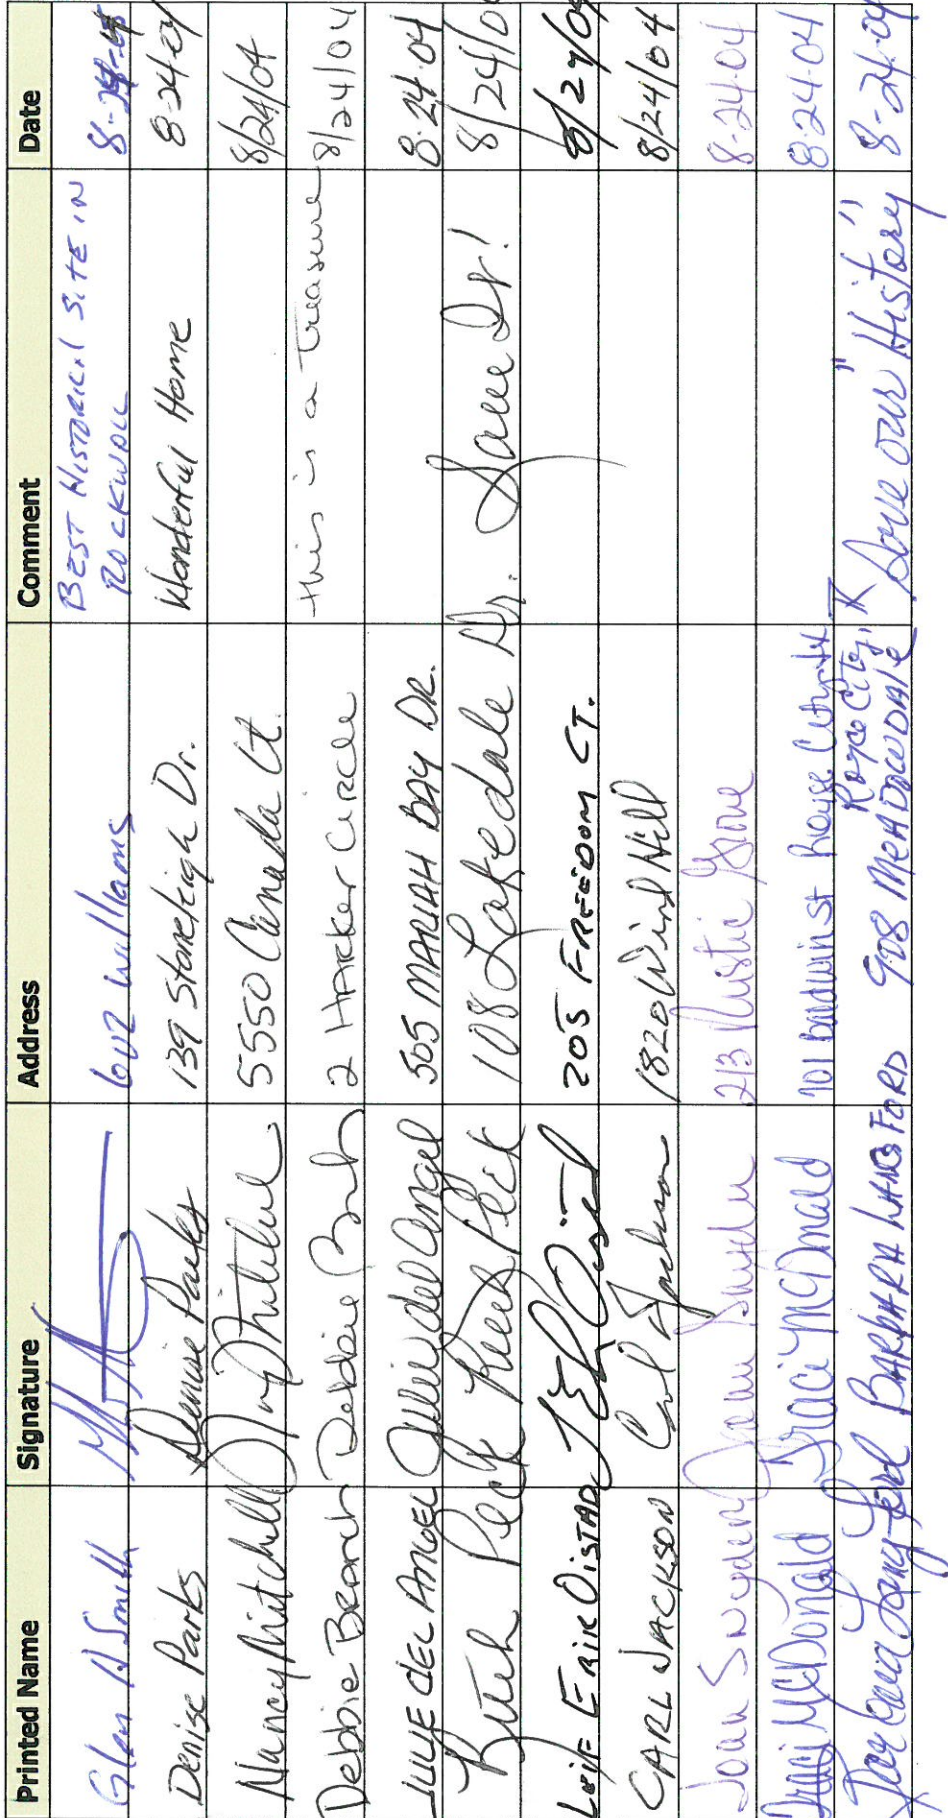 Printed Name Signature Address Comment Date
Glen A Smith 602 Williams BEST HISTORICAL SITE IN ROCKWALL 8-24-04
Denise Parks Denise Parks 139 Stoneleigh Dr. Wonderful Home 8-24-04
Nancy Mitchell 5550 Canada Ct. 8/24/04
Debbie Branch Debbie Branch 2 HARKER CIRCLE this is a treasure 8/24/04
JULIE DEL ANGEL Julie del Angel 505 MALIAH BAY DR. 8-24-04
Ruth Peck Ruth Peck 108 Lakedale Dr. Save Dr! 8/24/04
LEIF ERIK OISTAD 205 FREEDOM CT. 8/24/04
CARL JACKSON Carl Jackson 1820 Wind Hill 8/24/04
Joan Snyder Joan Snyder 213 Rustic Grove 8-24-04
Traci McDonald Traci McDonald 701 baldwin st Royse City 8-24-04
Barbara Langford BARBARA LANGFORD 908 MEADOWDALE Royce City, TX "Save our History" 8-24-04